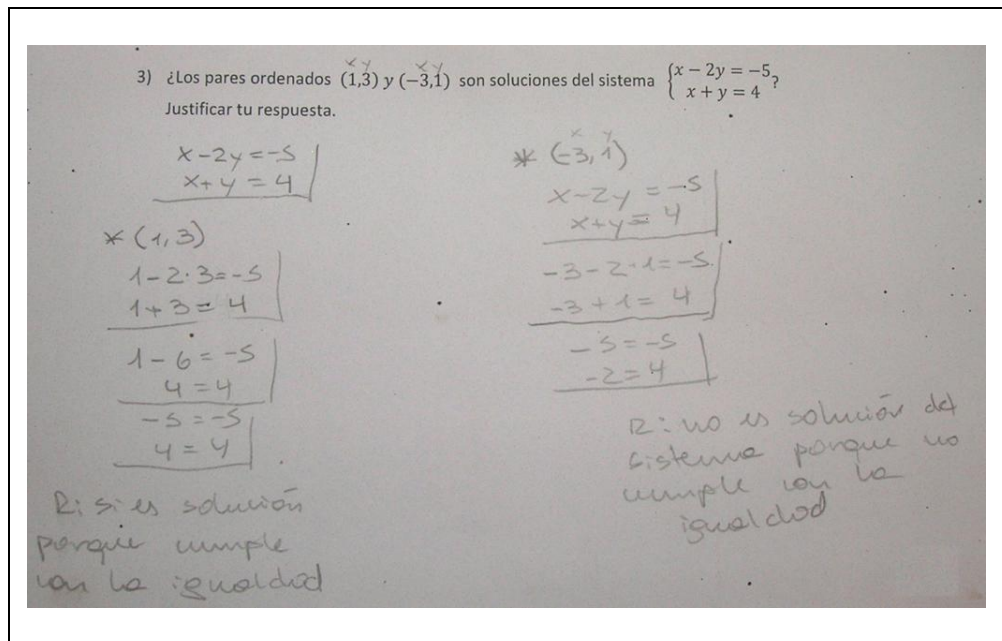 3) ¿Los pares ordenados (1,3) y (−3,1) son soluciones del sistema {x − 2y = −5, x + y = 4 ?
x y x y
Justificar tu respuesta.
x-2y=-5
x+y=4
* (1,3)
1-2·3=-5
1+3=4
1-6=-5
4=4
-5=-5
4=4
R: si es solución
porque cumple
con la igualdad
x y
* (-3,1)
x-2y=-5
x+y=4
-3-2·1=-5
-3+1=4
-5=-5
-2=4
R: no es solución del
sistema porque no
cumple con la
igualdad